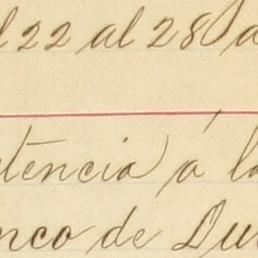 l 22 al 28 d
tencia á la
nco de Du